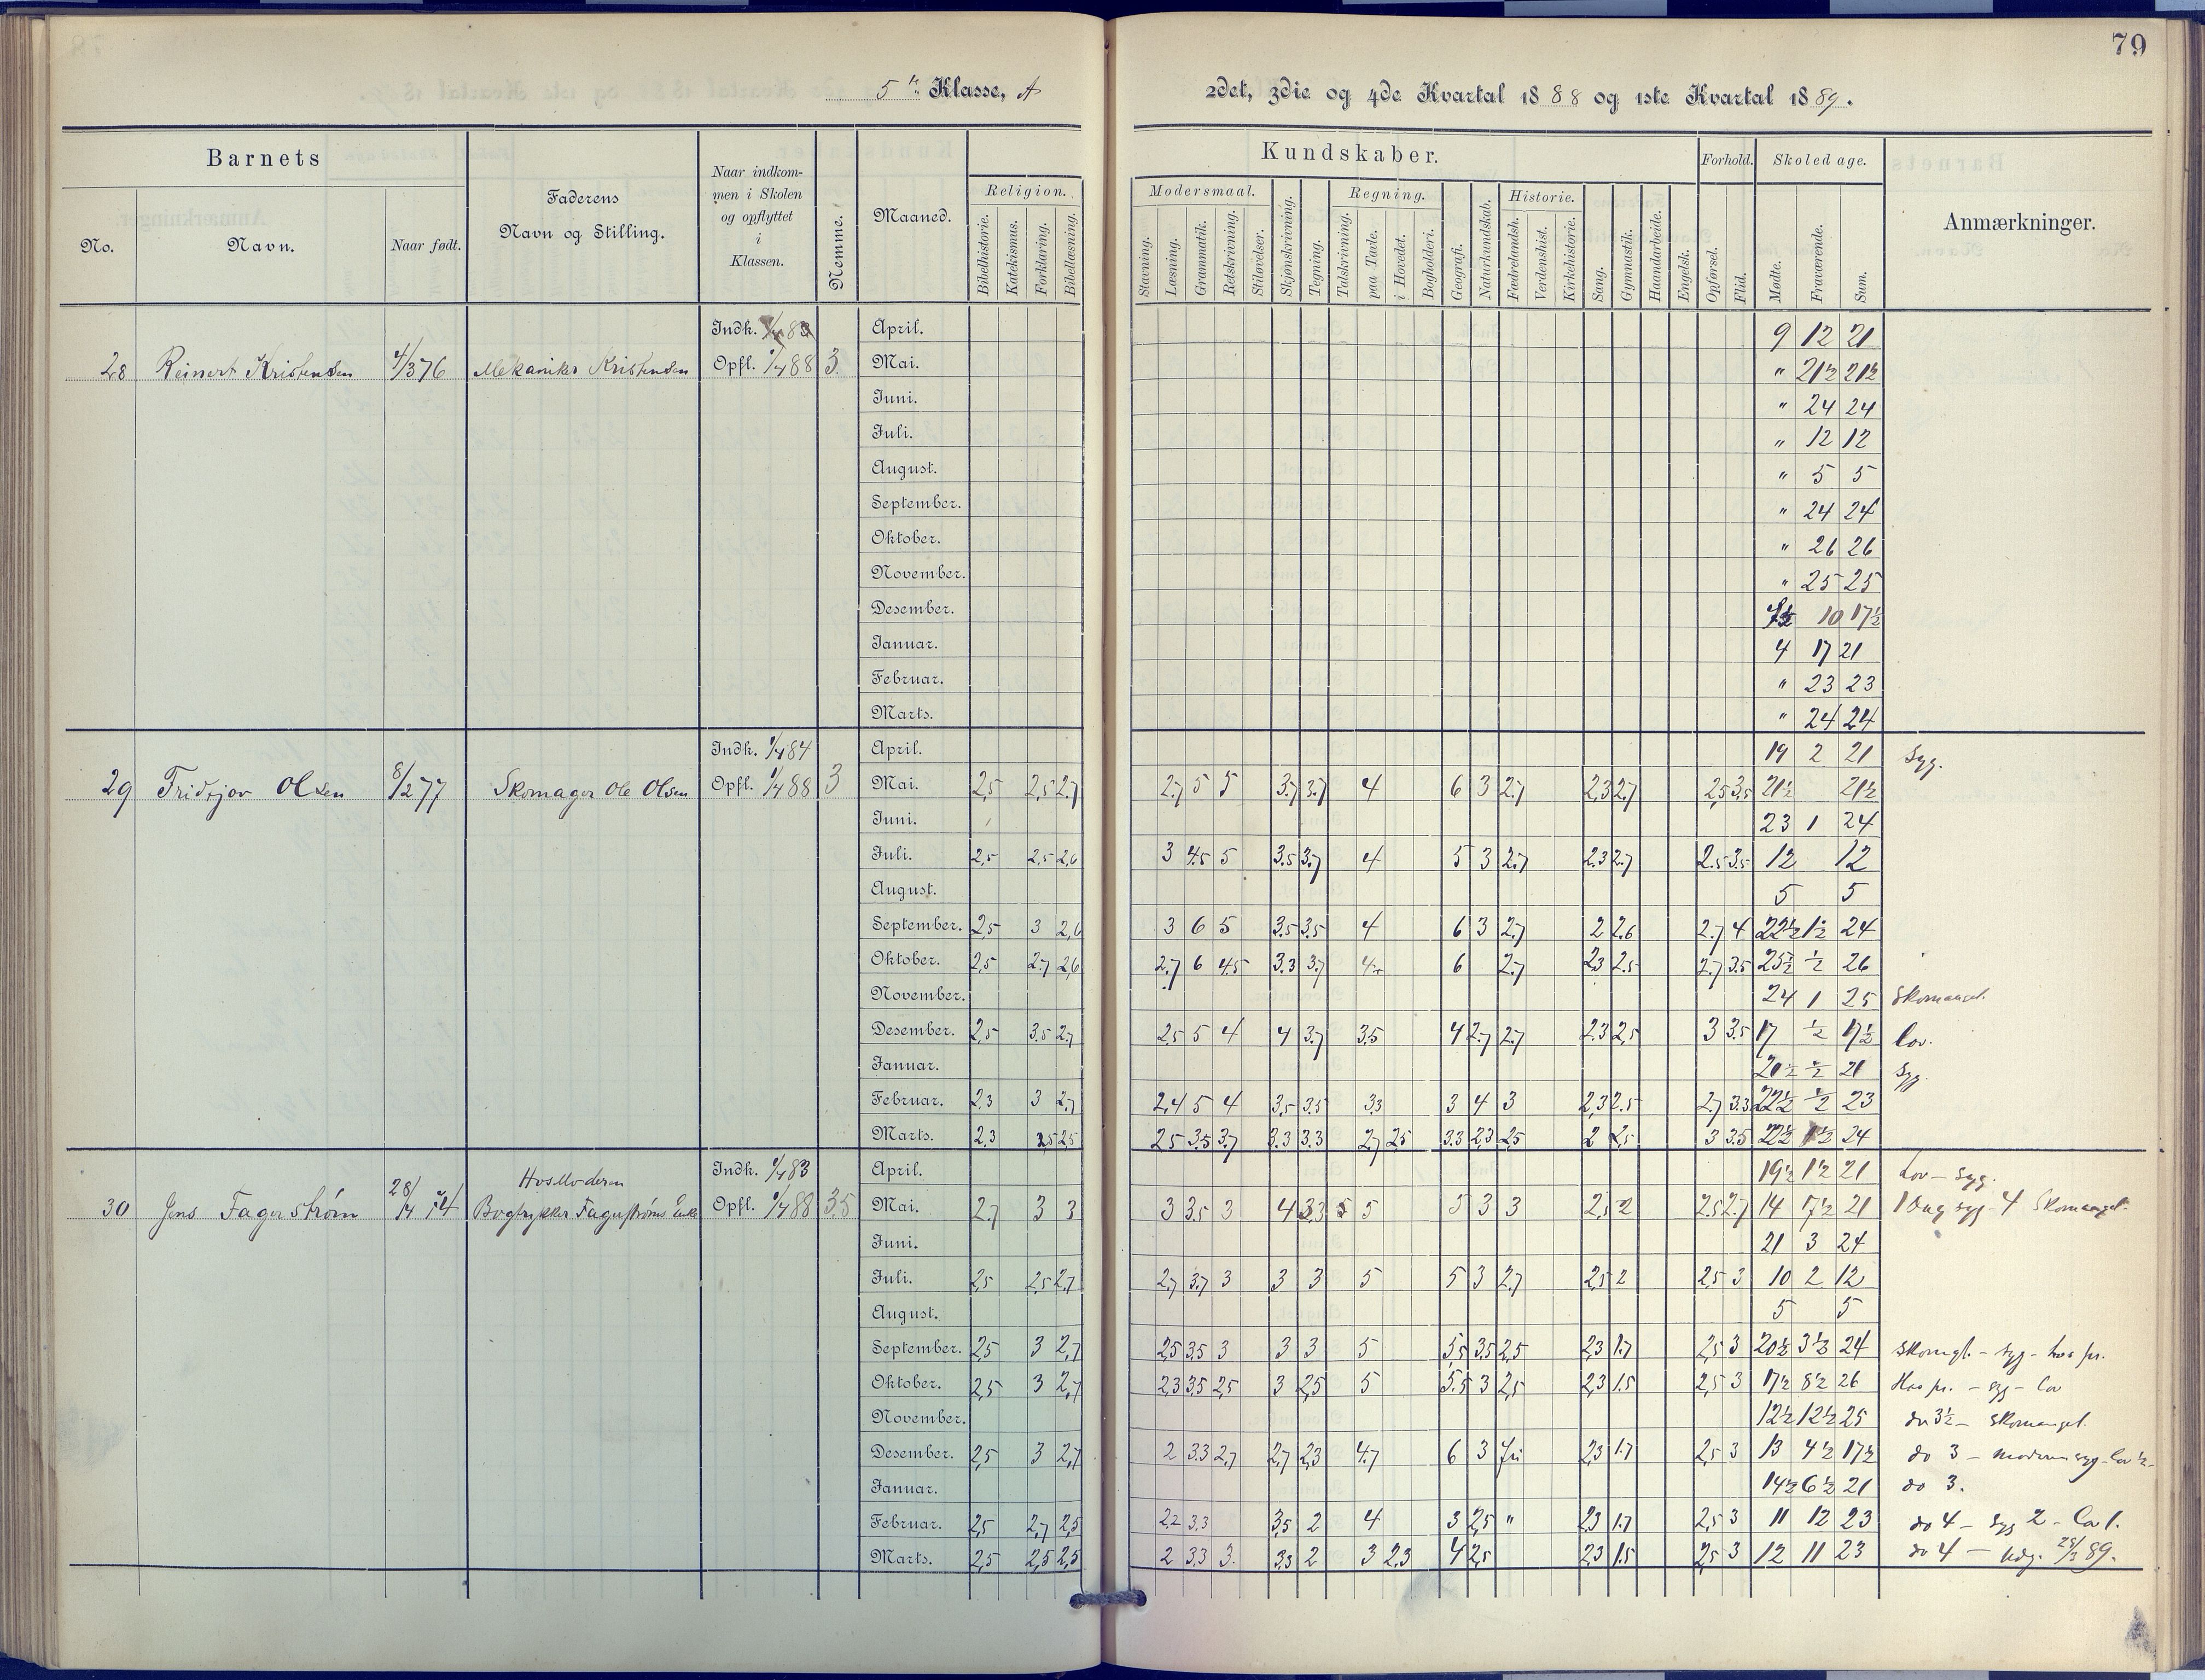 79
5te Klasse, A
2det, 3die og 4de Kvartal 1888 og 1ste Kvartal 1889.
Barnets
No.
Navn.
Naar født.
Faderens
Navn og Stilling.
Naar indkom-
men i Skolen
og opflyttet
i
Klassen.
Nemme.
Maaned.
Religion.
Bibelhistorie. Katekismus. Forklaring. Bibellæsning.
Kundskaber.
Modersmaal.
Stavning. Læsning. Grammatik. Retskrivning. Stiløvelser.
Skjønskrivning. Tegning.
Regning.
Talskrivning. paa Tavle. i Hovedet. Bogholderi.
Geografi. Naturkundskab.
Historie.
Fædrelandsh. Verdenshist. Kirkehistorie.
Sang. Gymnastik. Haandarbeide. Engelsk.
Forhold.
Opførsel. Flid.
Skoledage.
Mødte. Fraværende. Sum.
Anmærkninger.
28 Reinert Kristensen 4/3 76 Mekaniker Kristensen
Indk. 1/4 83
Opfl. 1/4 88 3.
April. 9 12 21
Mai. " 21½ 21½
Juni. " 24 24
Juli. " 12 12
August. " 5 5
September. " 24 24
Oktober. " 26 26
November. " 25 25
Desember. 7½ 10 17½
Januar. 4 17 21
Februar. " 23 23
Marts. " 24 24
29 Fridtjov Olsen 8/2 77 Skomager Ole Olsen
Indk. 1/4 84
Opfl. 1/4 88 3
April. 19 2 21 Syg.
Mai. 2,5 2,5 2.7 2.7 5 5 3.7 3.7 4 6 3 2.7 2,3 2.7 2,5 3.5 21½ 21½
Juni. 23 1 24
Juli. 2,5 2,5 2,6 3 4.5 5 3.5 3.7 4 5 3 2.7 2.3 2.7 2.5 3.5 12 12
August. 5 5
September. 2,5 3 2,6 3 6 5 3.5 3.5 4 6 3 2.7 2 2.6 2.7 4 22½ 1½ 24
Oktober. 2,5 2.7 2,6 2.7 6 4.5 3.3 3.7 4 6 2.7 2,3 2.5 2.7 3.5 25½ ½ 26
November. 24 1 25 Skomangel.
Desember. 2,5 3.5 2.7 2,5 5 4 4 3.7 3.5 4 2.7 2.7 2.3 2,5 3 3.5 17 ½ 17½ lov.
Januar. 20½ ½ 21 Syg.
Februar. 2,3 3 2.7 2,4 5 4 3,5 3.5 3,3 3 4 3 2,3 2.5 2.7 3.3 22½ ½ 23
Marts. 2,3 2,5 2,5 2,5 3.5 3.7 3.3 3.3 2.7 2,5 3.3 2,3 2,5 2 2,5 3 3.5 22½ 1½ 24
30 Jens Fagerstrøm 28/4 74
Hos Moderen
Bogtrykker Fagerstrøms Enke
Indk. 1/4 83
Opfl. 1/4 88 3.5
April. 19½ 1½ 21 Lov - syg.
Mai. 2.7 3 3 3 3.5 3 4 3.3 5 5 5 3 3 2,5 2 2.5 2.7 14 7½ 21 1 Dag syg - 4 Skomangel.
Juni. 21 3 24
Juli. 2,5 2,5 2,7 2,7 3,7 3 3 3 5 5 3 2,7 2,5 2 2,5 3 10 2 12
August. 5 5
September. 2,5 3 2,7 2,5 3.5 3 3 3 5 5,5 3.5 2,5 2,3 1.7 2,5 3 20½ 3½ 24 Skomgl. - syg - hos pr.
Oktober. 2,5 3 2,7 2,3 3,5 2,5 3 2,5 5 5.5 3 2,5 2,3 1.5 2,5 3 17½ 8½ 26 Hos pr. - syg - lov
November. 12½ 12½ 25 do 3½ - Skomangel.
Desember. 2,5 3 2,7 2 3.3 2,7 2,7 2,3 4.7 6 3 fri 2,3 1.7 2,5 3 13 4½ 17½ do 3 - moderen syg - lov ½ -
Januar. 14½ 6½ 21 do 3.
Februar. 2,5 2,7 2,5 2,2 3,3 3,5 2 4 3 2,5 " 2,3 1.7 2,5 3 11 12 23 do 4 - syg 2 - lov 1.
Marts. 2,5 2,5 2,5 2 3.3 3. 3,3 2 3 2,3 4 2,5 2,3 1.5 2,5 3 12 11 23 do 4 - udg. 89.